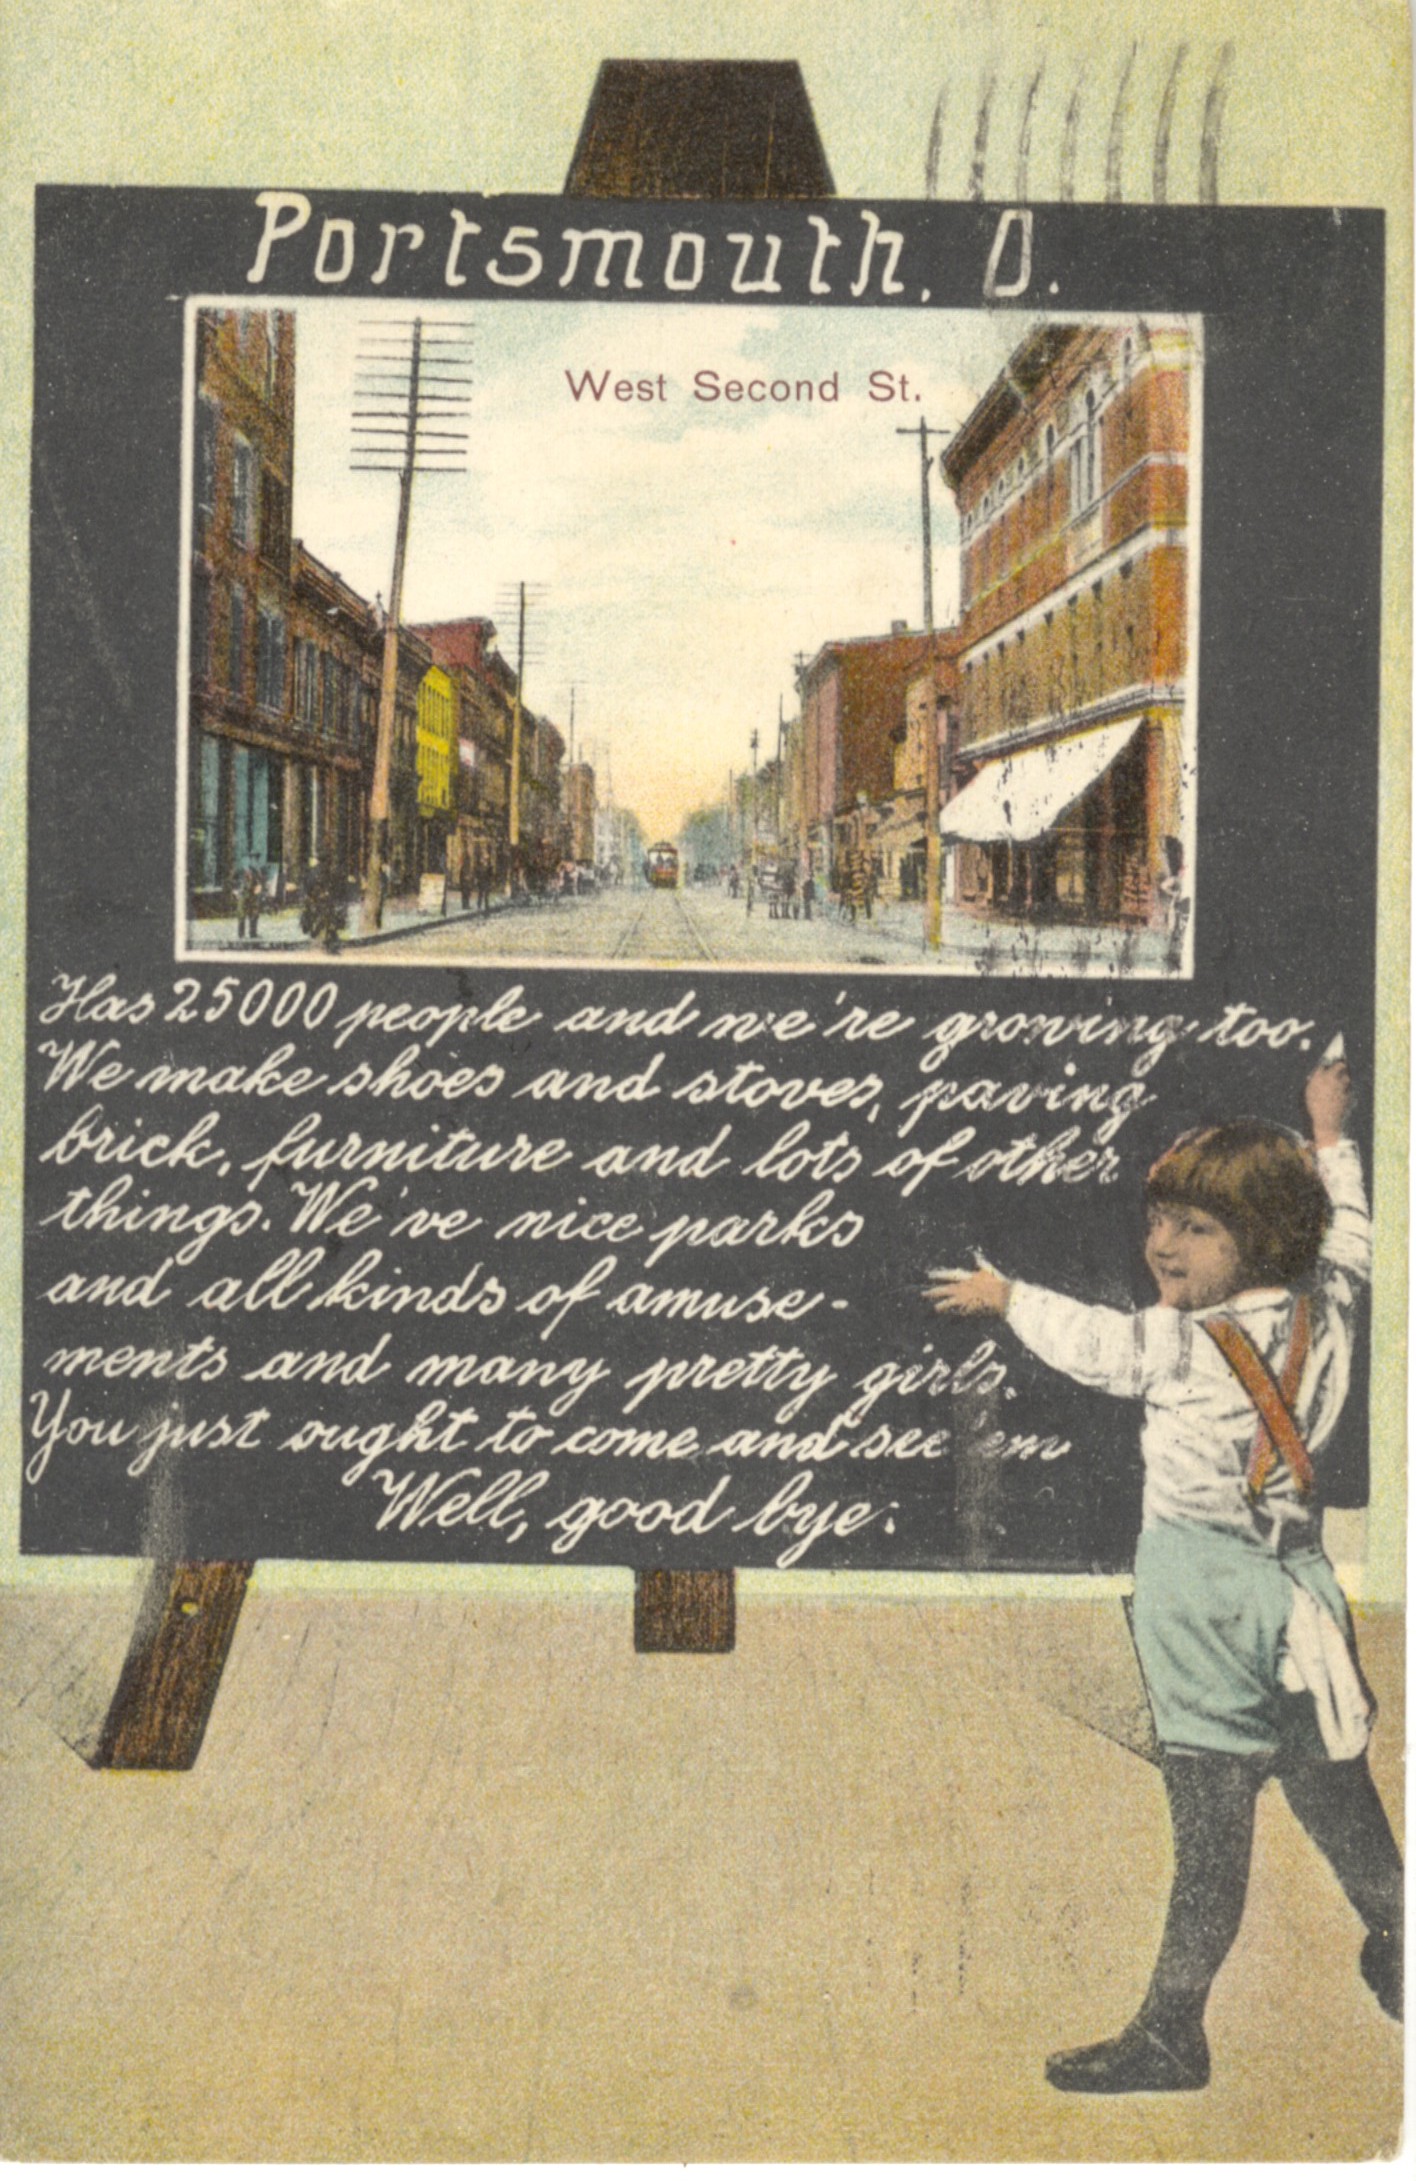 Portsmouth, O.
West Second St.
Has 25000 people and we're growing too.
We make shoes and stoves, paving
brick, furniture and lots of other
things. We've nice parks
and all kinds of amuse-
ments and many pretty girls.
You just ought to come and see 'em
Well, good bye.